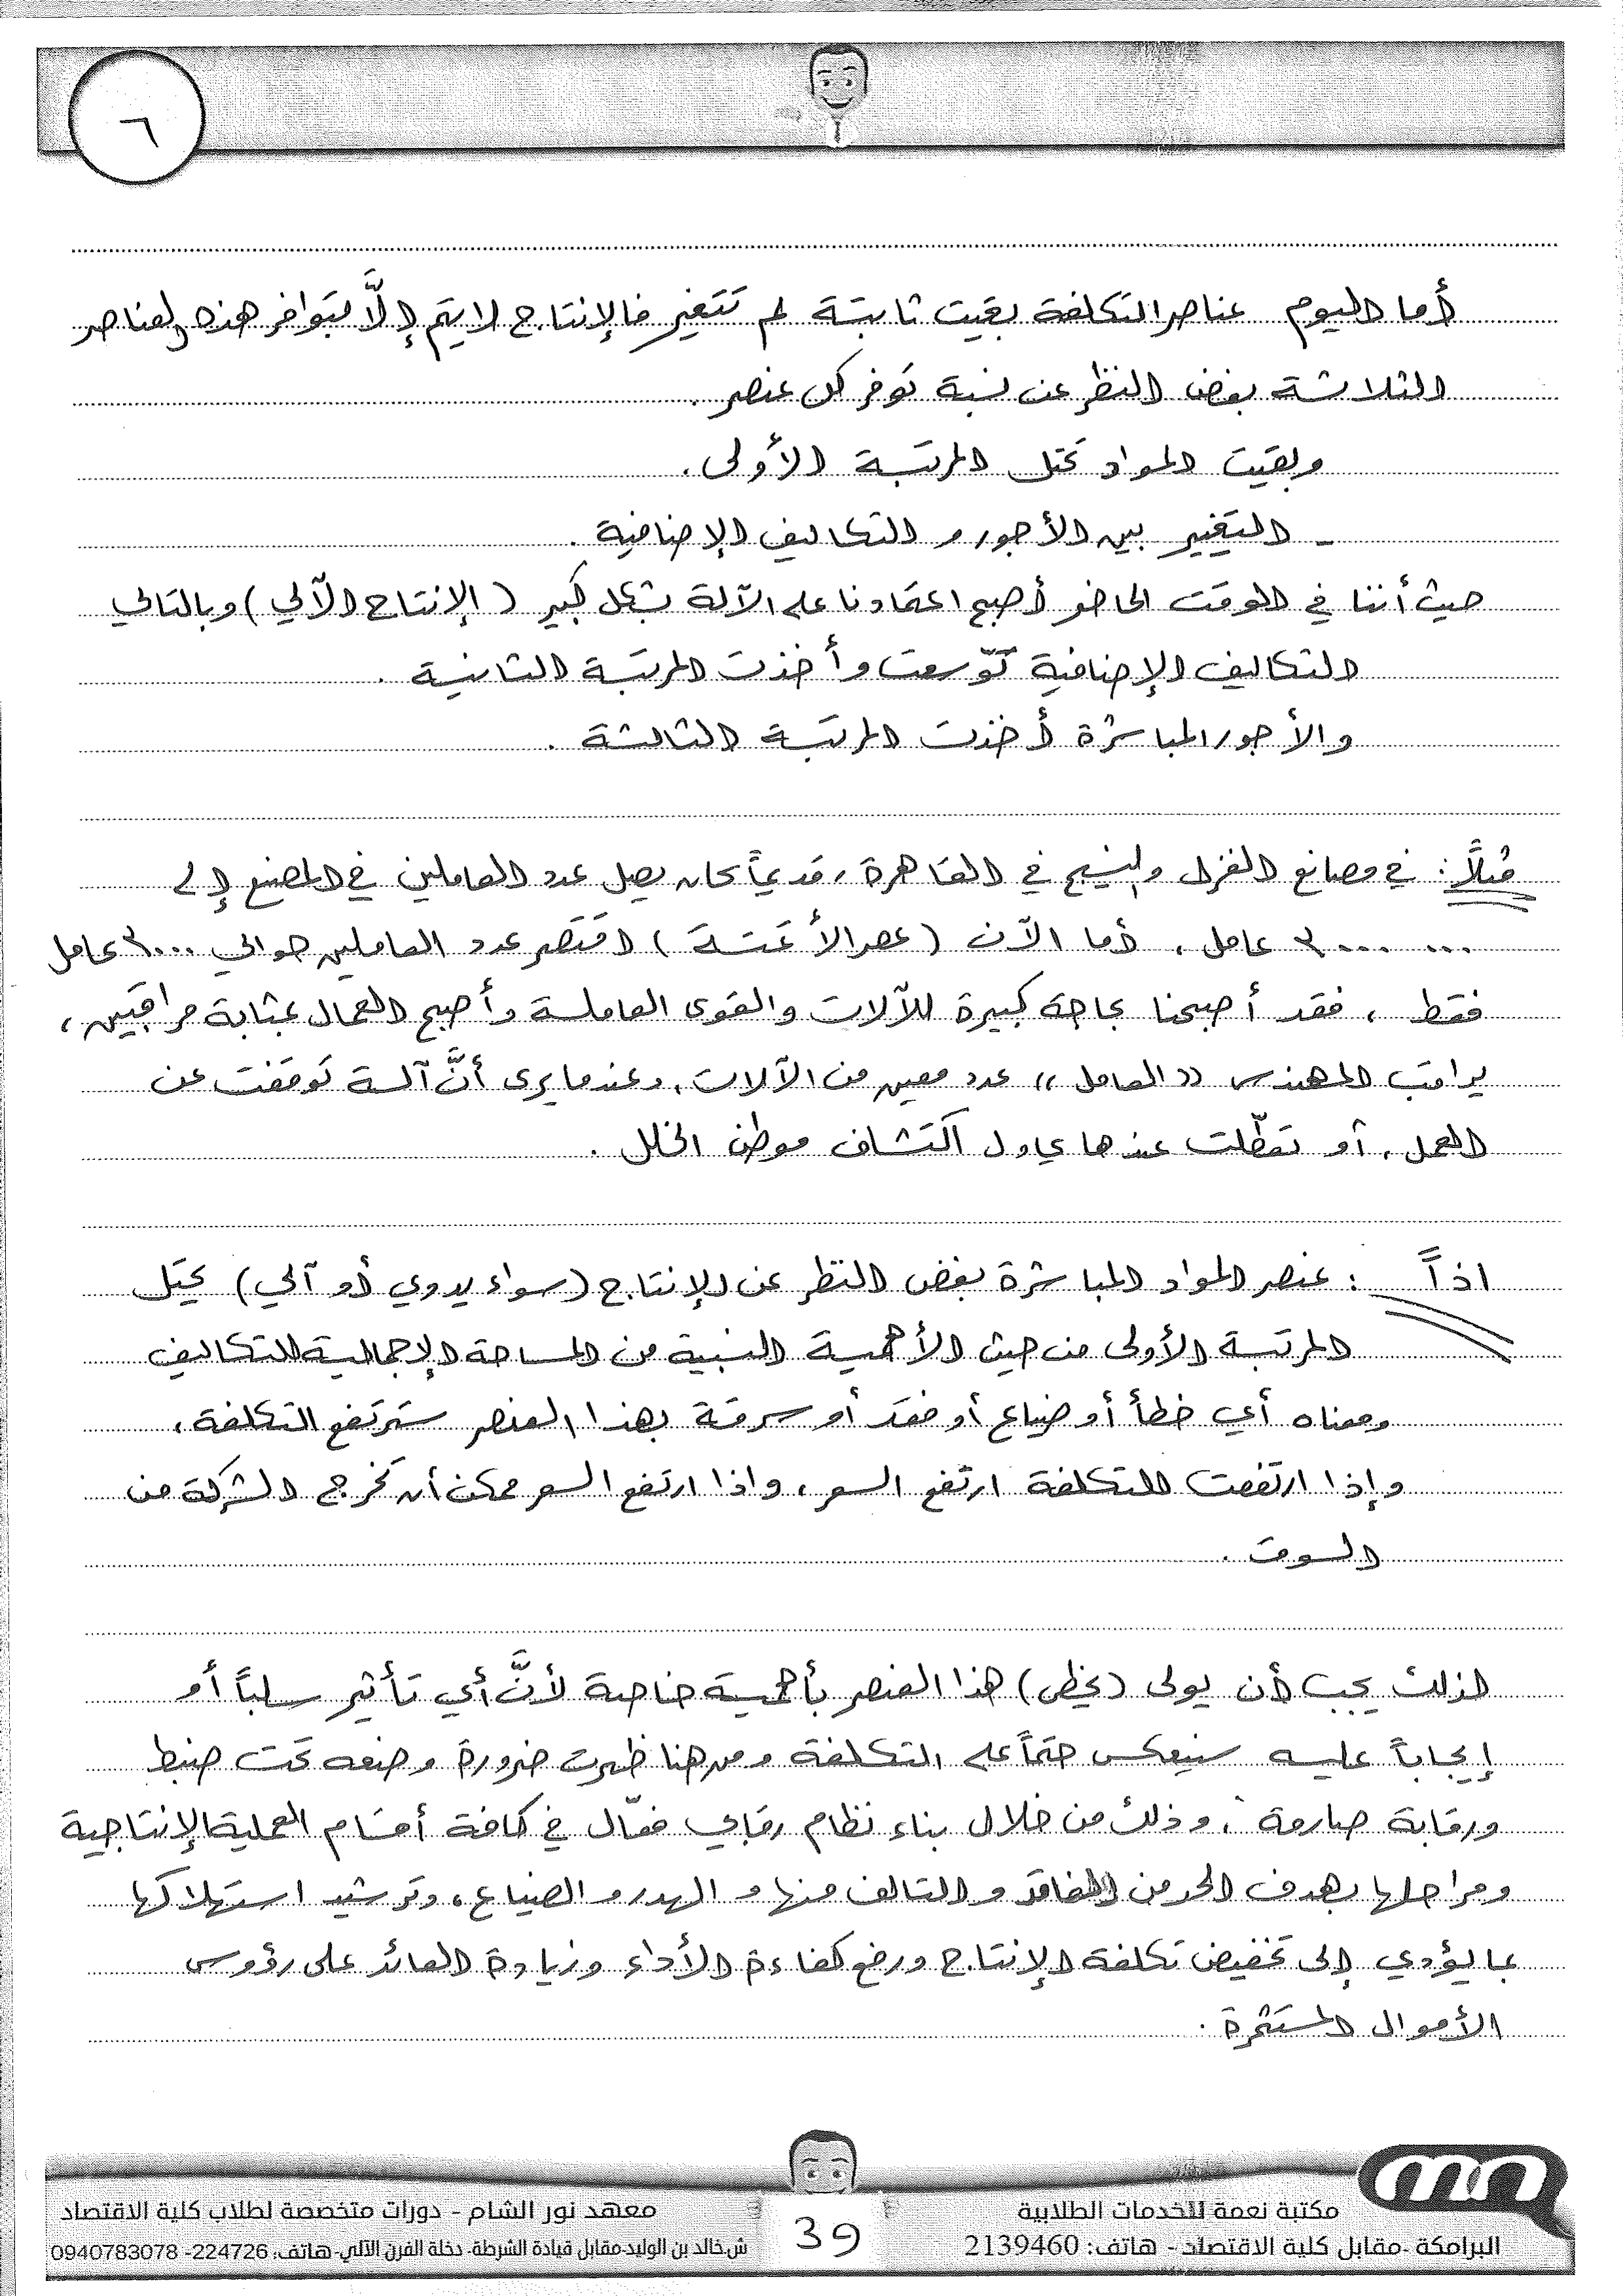 ٦
أما اليوم عناصر التكلفة بقيت ثابتة لم تتغير فالإنتاج لا يتم إلَّا بتوافر هذه العناصر
الثلاثة بغض النظر عن نسبة توفر كل عنصر .
وبقيت المواد تحتل المرتبة الأولى .
- التغيير بين الأجور و التكاليف الإضافية .
حيث أننا في الوقت الحاضر أصبح اعتمادنا على الآلة بشكل كبير ( الإنتاج الآلي ) وبالتالي
التكاليف الإضافية توّسعت وأخذت المرتبة الثانية .
والأجور المباشرة أخذت المرتبة الثالثة .
مثلاً : في مصانع الغزل والنسيج في القاهرة ، قديماً كان يصل عدد العاملين في المصنع إلى
عامل ، أما الآن ( عصر الأتمتة ) اقتصر عدد العاملين حوالي ٣٠٠٠ عامل
فقط ، فقد أصبحنا بحاجة كبيرة للآلات والقوى العاملة وأصبح العمال بمثابة مراقبين ،
يراقب المهندس (( العامل )) عدد معين من الآلات ، وعندما يرى أنَّ آلة توقفت عن
العمل ، أو تعطّلت عندها يحاول اكتشاف موطن الخلل .
اذاً : عنصر المواد المباشرة بغض النظر عن الإنتاج ( سواء يدوي أو آلي ) يحتل
المرتبة الأولى من حيث الأهمية النسبية من المساحة الإجمالية للتكاليف
ومعناه أي خطأ أو ضياع أو فقد أو سرقة بهذا العنصر سترتفع التكلفة ،
وإذا ارتفعت التكلفة ارتفع السعر ، واذا ارتفع السعر ممكن أن تخرج الشركة من
السوق .
لذلك يجب أن يولى ( يحظى ) هذا العنصر بأهمية خاصة لأنَّ أي تأثير سلباً أو
إيجاباً عليه سينعكس حتماً على التكلفة ومن هنا ظهرت ضرورة وضعه تحت ضبط
ورقابة صارمة ، وذلك من خلال بناء نظام رقابي فعّال في كافة أقسام العملية الإنتاجية
ومراحلها بهدف الحد من الفاقد و التالف منها و الهدر و الضياع ، وترشيد استهلاكها
بما يؤدي إلى تخفيض تكلفة الإنتاج ورفع كفاءة الأداء وزيادة العائد على رؤوس
الأموال المستثمرة .
مكتبة نعمة للخدمات الطلابية
البرامكة -مقابل كلية الاقتصاد - هاتف: 2139460
39
معهد نور الشام - دورات متخصصة لطلاب كلية الاقتصاد
ش.خالد بن الوليد-مقابل قيادة الشرطة- دخلة الفرن الآلي-هاتف: 224726- 0940783078